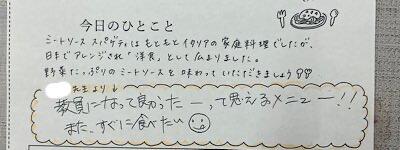 今日のひとこと
ミートソーススパゲティはもともとイタリアの家庭料理でしたが、
日本でアレンジされ「洋食」として広まりました。
野菜たっぷりのミートソースを味わっていただきましょう
先生より↓
教員になって良かったーって思えるメニュー!!
また、すぐに食べたい